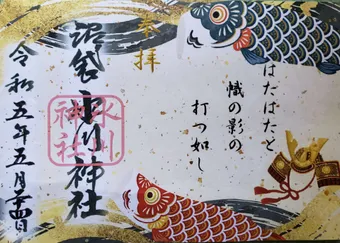 はたはたと
幟の影の
打つ如し
奉拝
沼袋氷川神社
氷川
神社
令和五年五月十四日